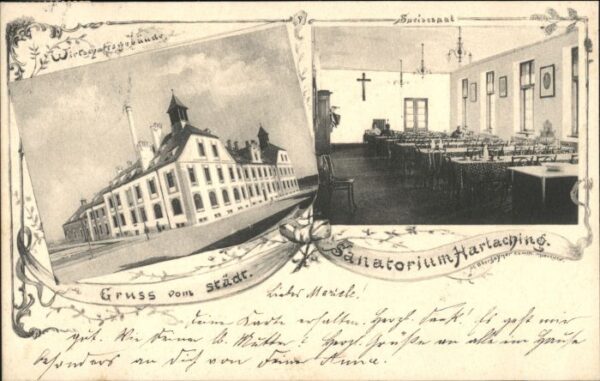 Wirtschaftsgebäude.
Speisesaal
Gruss vom städt.
Sanatorium Harlaching.
Liebes Mariele!
Deine Karte erhalten. Herzl. Dank! Es geht mir
gut. Wie Deiner lb. Mutter? Herzl. Grüße an alle im Hause
besonders an dich von Deiner Anna.